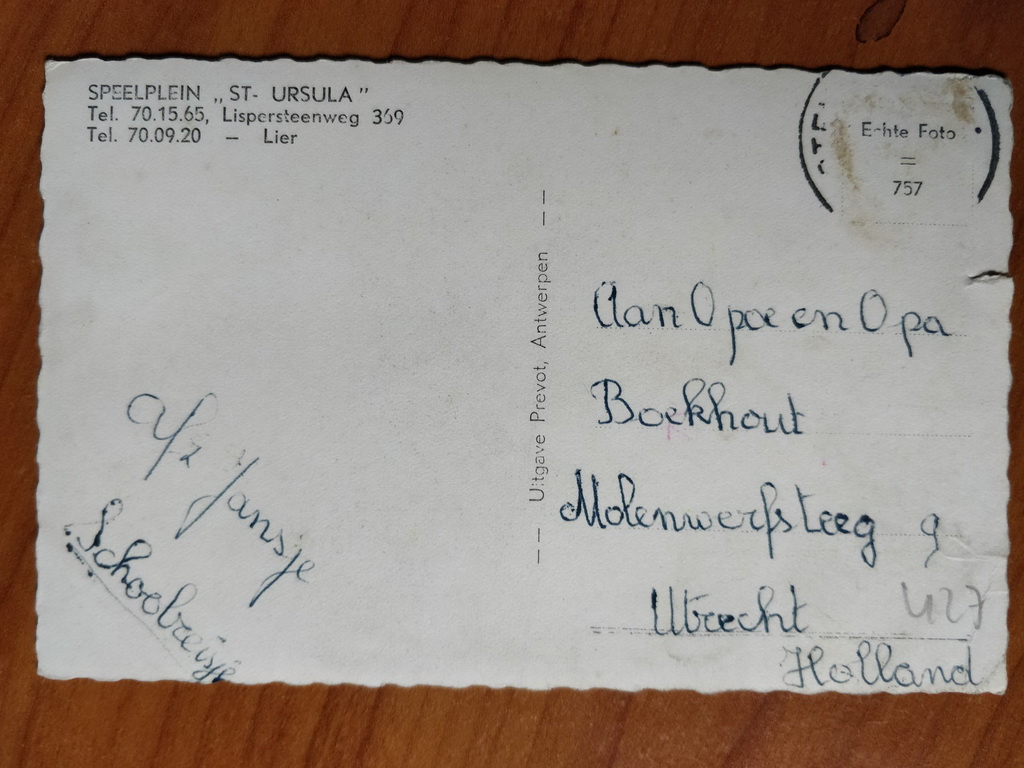 SPEELPLEIN „ST- URSULA"
Tel. 70.15.65, Lispersteenweg 369
Tel. 70.09.20 — Lier
Echte Foto
=
757
-- Uitgave Prevot, Antwerpen --
Aan Opoe en Opa
Boekhout
Molenwerfsteeg 9
Utrecht
Holland
427
Afz Jansje
Schoolreisje